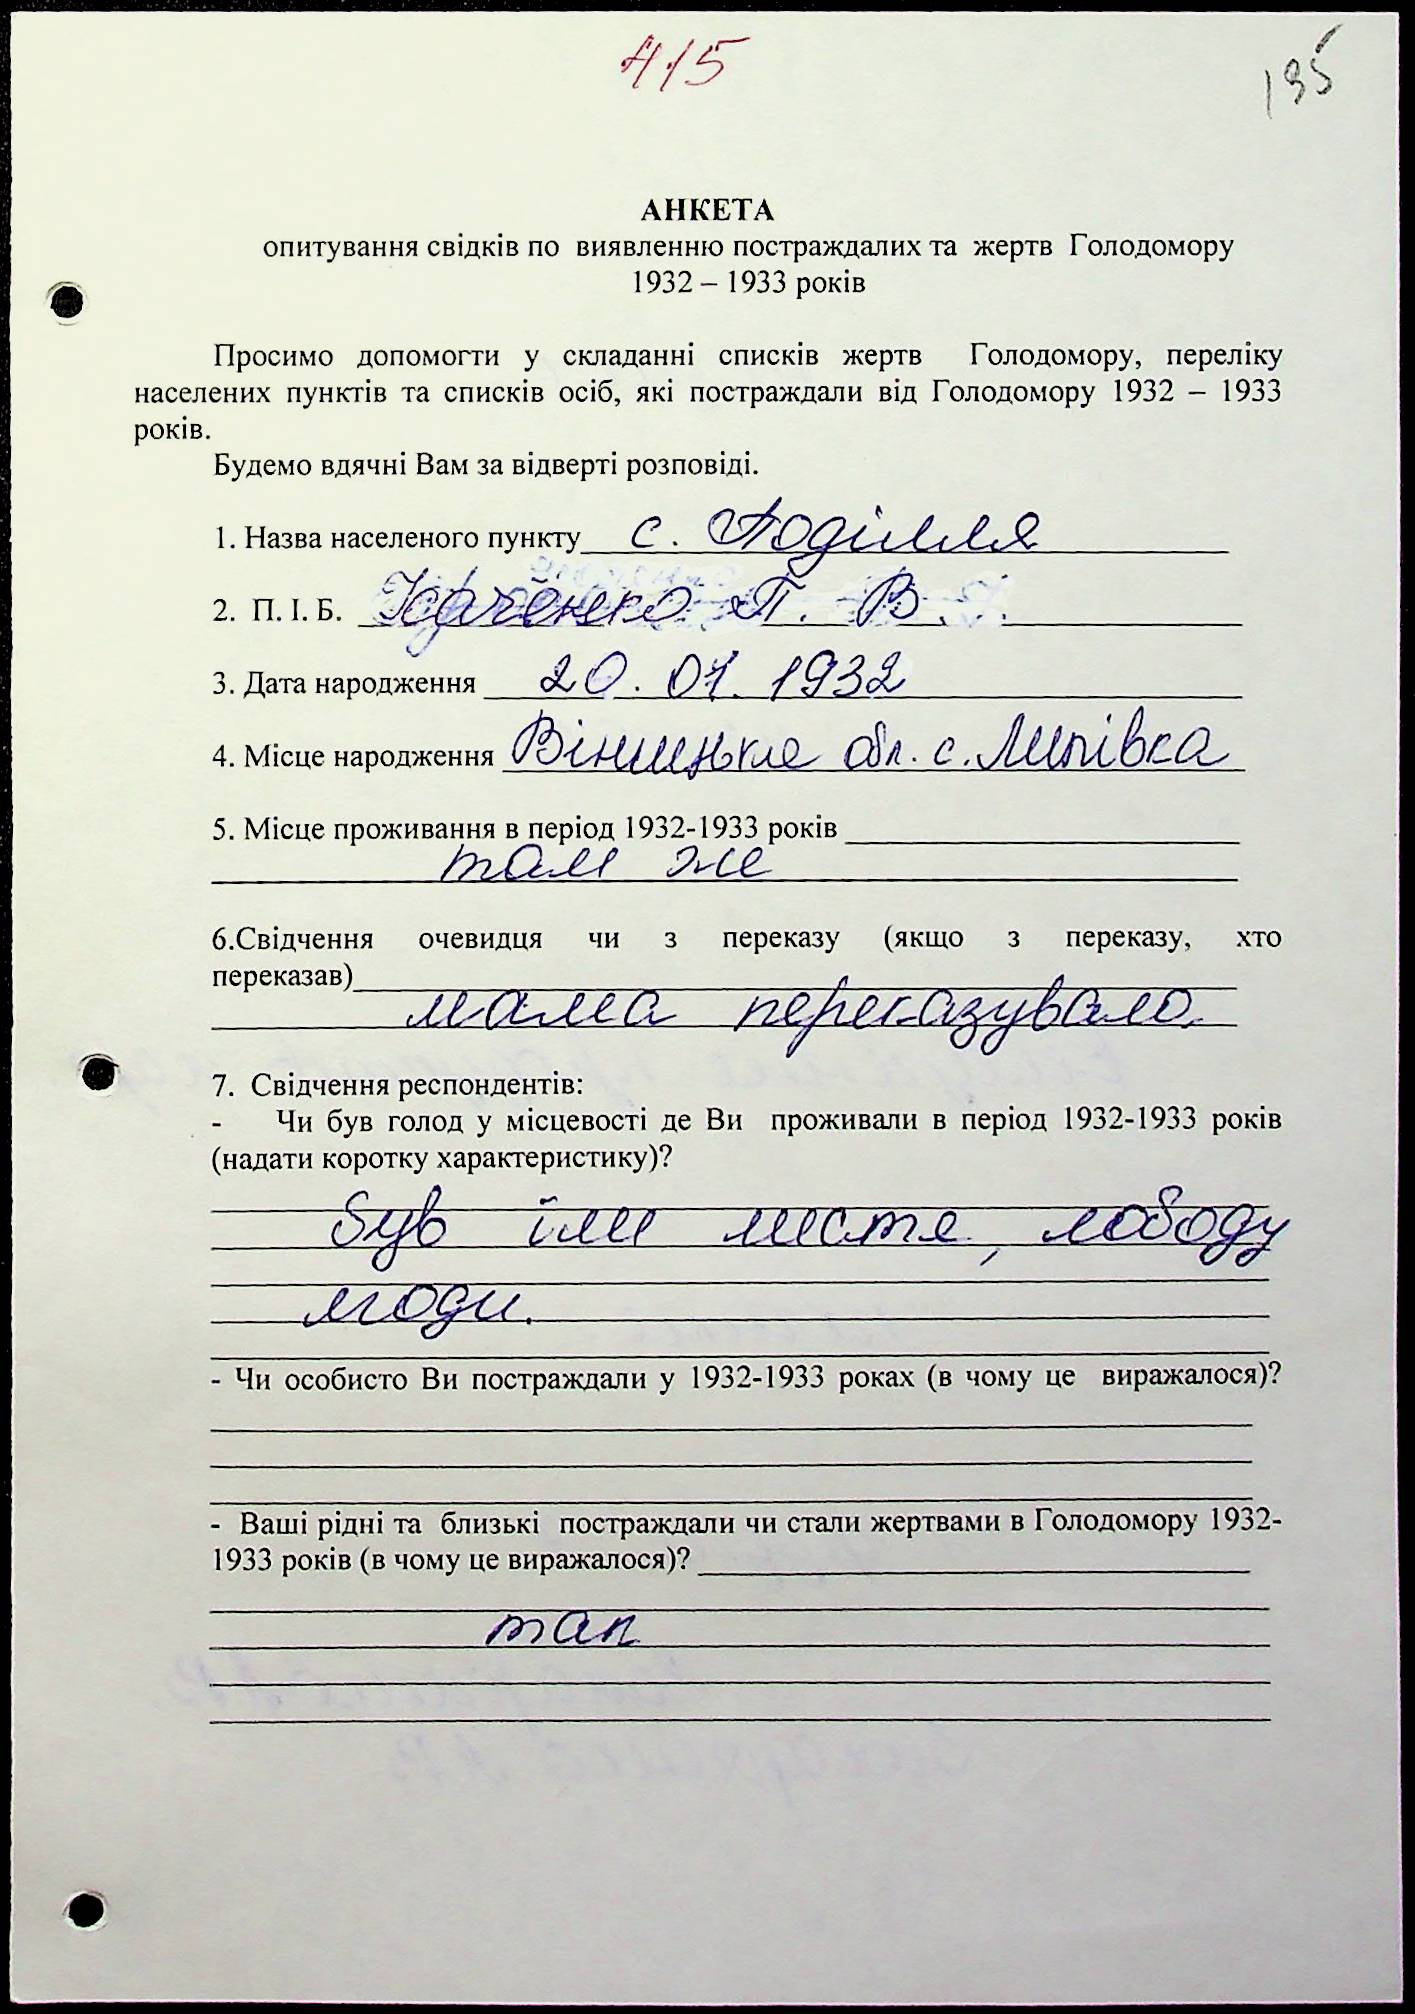 415
195
АНКЕТА
опитування свідків по виявленню постраждалих та жертв Голодомору
1932 – 1933 років
Просимо допомогти у складанні списків жертв Голодомору, переліку
населених пунктів та списків осіб, які постраждали від Голодомору 1932 – 1933
років.
Будемо вдячні Вам за відверті розповіді.
1. Назва населеного пункту с. Поділля
2. П. І. Б. Харченко П. В.
3. Дата народження 20.01.1932
4. Місце народження Вінницька обл. с. Липівка
5. Місце проживання в період 1932-1933 років
там же
6.Свідчення очевидця чи з переказу (якщо з переказу, хто
переказав)
мама переказувала.
7. Свідчення респондентів:
- Чи був голод у місцевості де Ви проживали в період 1932-1933 років
(надати коротку характеристику)?
був їли листя, лободу
ягоди.
- Чи особисто Ви постраждали у 1932-1933 роках (в чому це виражалося)?
- Ваші рідні та близькі постраждали чи стали жертвами в Голодомору 1932-
1933 років (в чому це виражалося)?
так